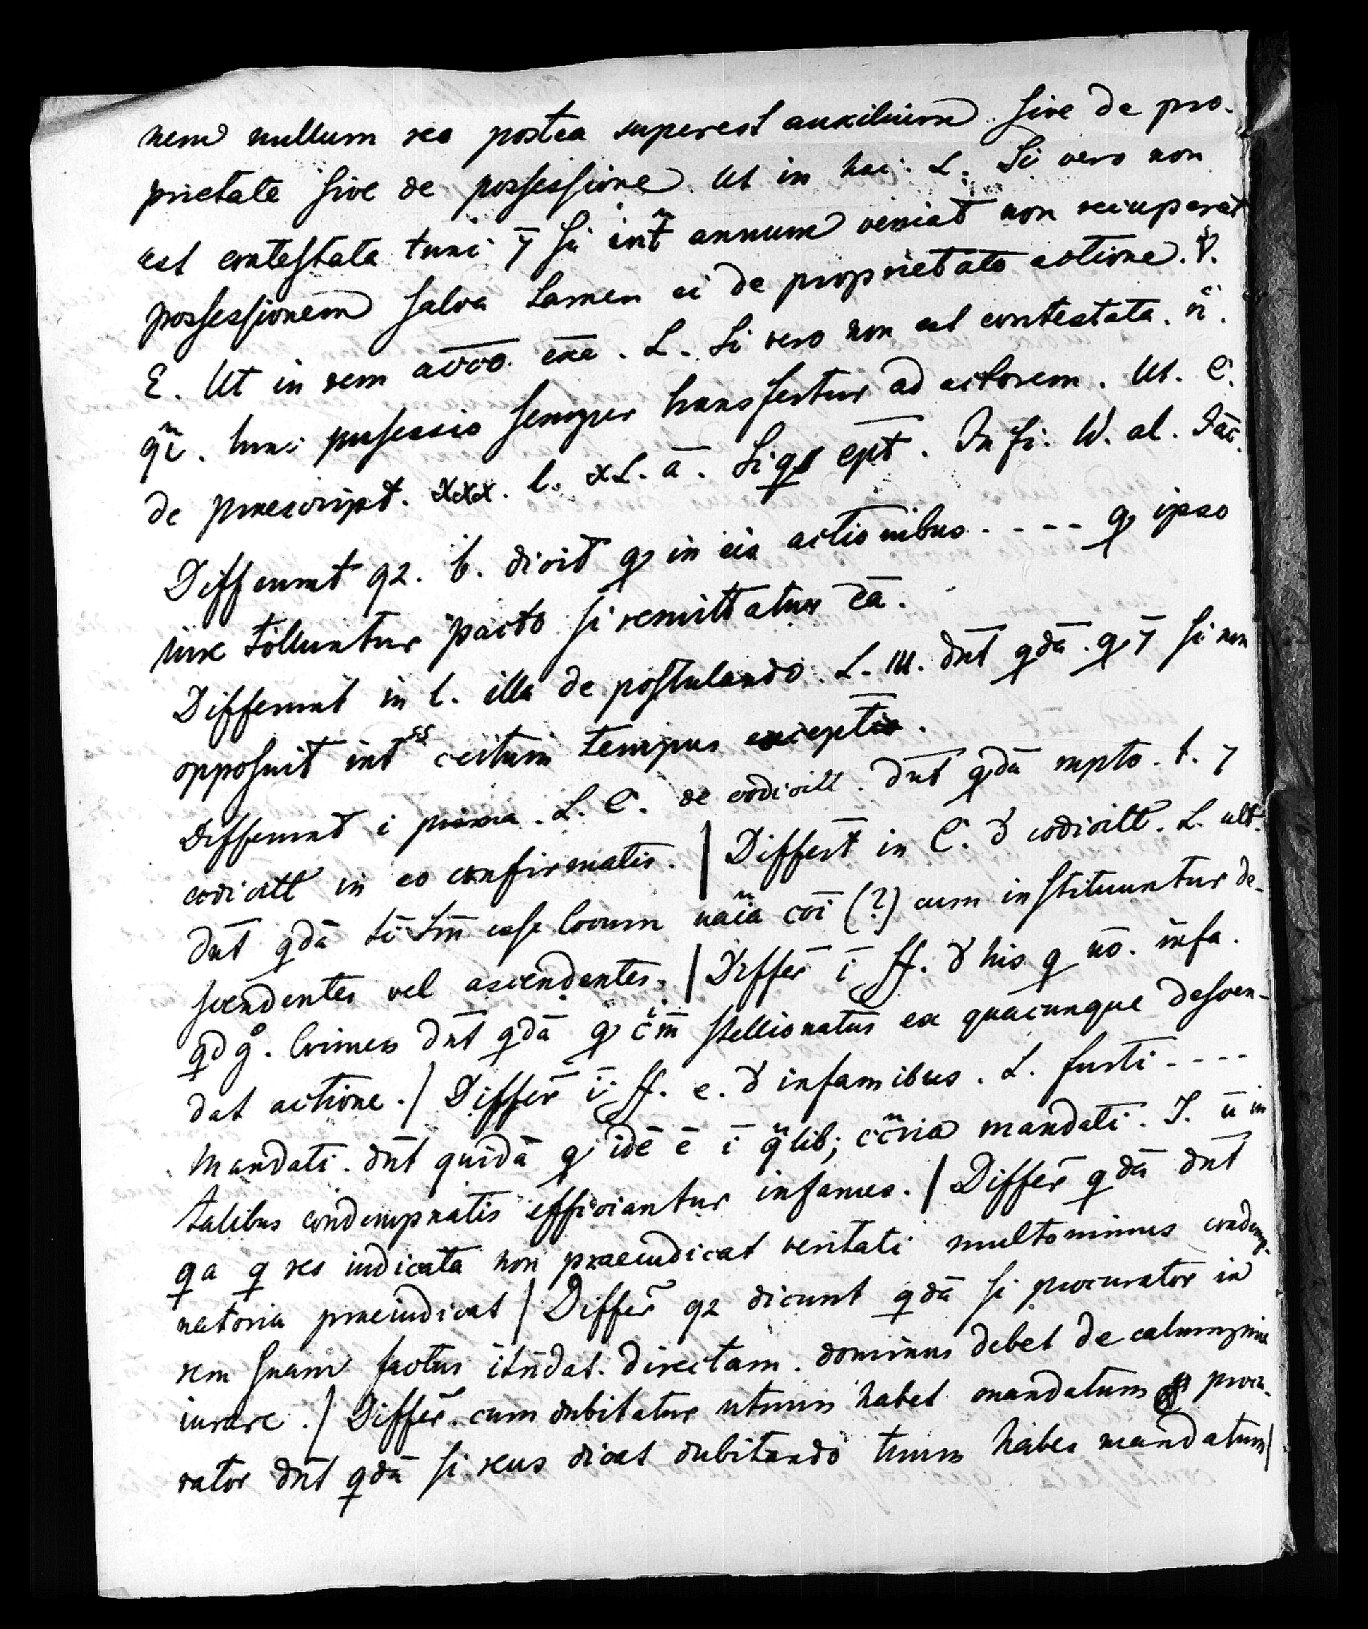 nem nullum reo postea superest auxilium sive de pro-
prietate sive de possessione. Ut in hac. L. Si vero non
est contestata tunc 7 si int̄ annum veniat non recuperat
possessionem salva tamen ei de proprietate actione. V.
E. Ut in rem a͞c͞c͞o. exe. L. Si vero non est contestata. n̄.
q̄ī. tunc possessio semper transfertur ad actorem. Ut. C.
de praescript. xxx. l. xL. ā. Siqs ept̄. In fi. W. al. Iāc̄.
Differunt q2. b. dicit q in eis actionibus ---- q ipso
iure tolluntur pacto si remittatur ēā.
Differunt in l. illa de postulando. L. III. dnt̄ qdā. q 7 si non
opposuit int̄ certum tempus exceptio.
Differunt i prima. L. C. de codicill. dnt̄ qdā rupto. t. 7
codicill in eo confirmatis. | Differt in C. d codicill. L. ult.
dnt̄ qdā tī tm̄ esse locum nāīā cōī (?) cum instituuntur de-
scendentes vel ascendentes. | Differ̄ ī ff. d his q nō. infa.
qdg̊. Crimen dnt̄ qdā q c̄m̄ stellionatus ex quacunque descen-
dat actione. | Differ̄ ī ff. e. d infamibus. L. furti ----
Mandati. dnt̄ quidā q idē ē ī q̄lib; c̄c̄ria mandati. I. ū in
talibus condempnatis efficiantur infames. | Differ̄ qdā dnt̄
qa q res iudicata non praeiudicat veritati multominus condemp-
natoria praeiudicat | Differ̄ q2 dicunt qdā si procurator in
rem suam factus itn̄dat. directam. dominus debet de calumpnia
iurare. | Differ̄. cum dubitatur utrum habet mandatum procu-
rator dnt̄ qdā si reus dicat dubitando tuum habes mandatum |